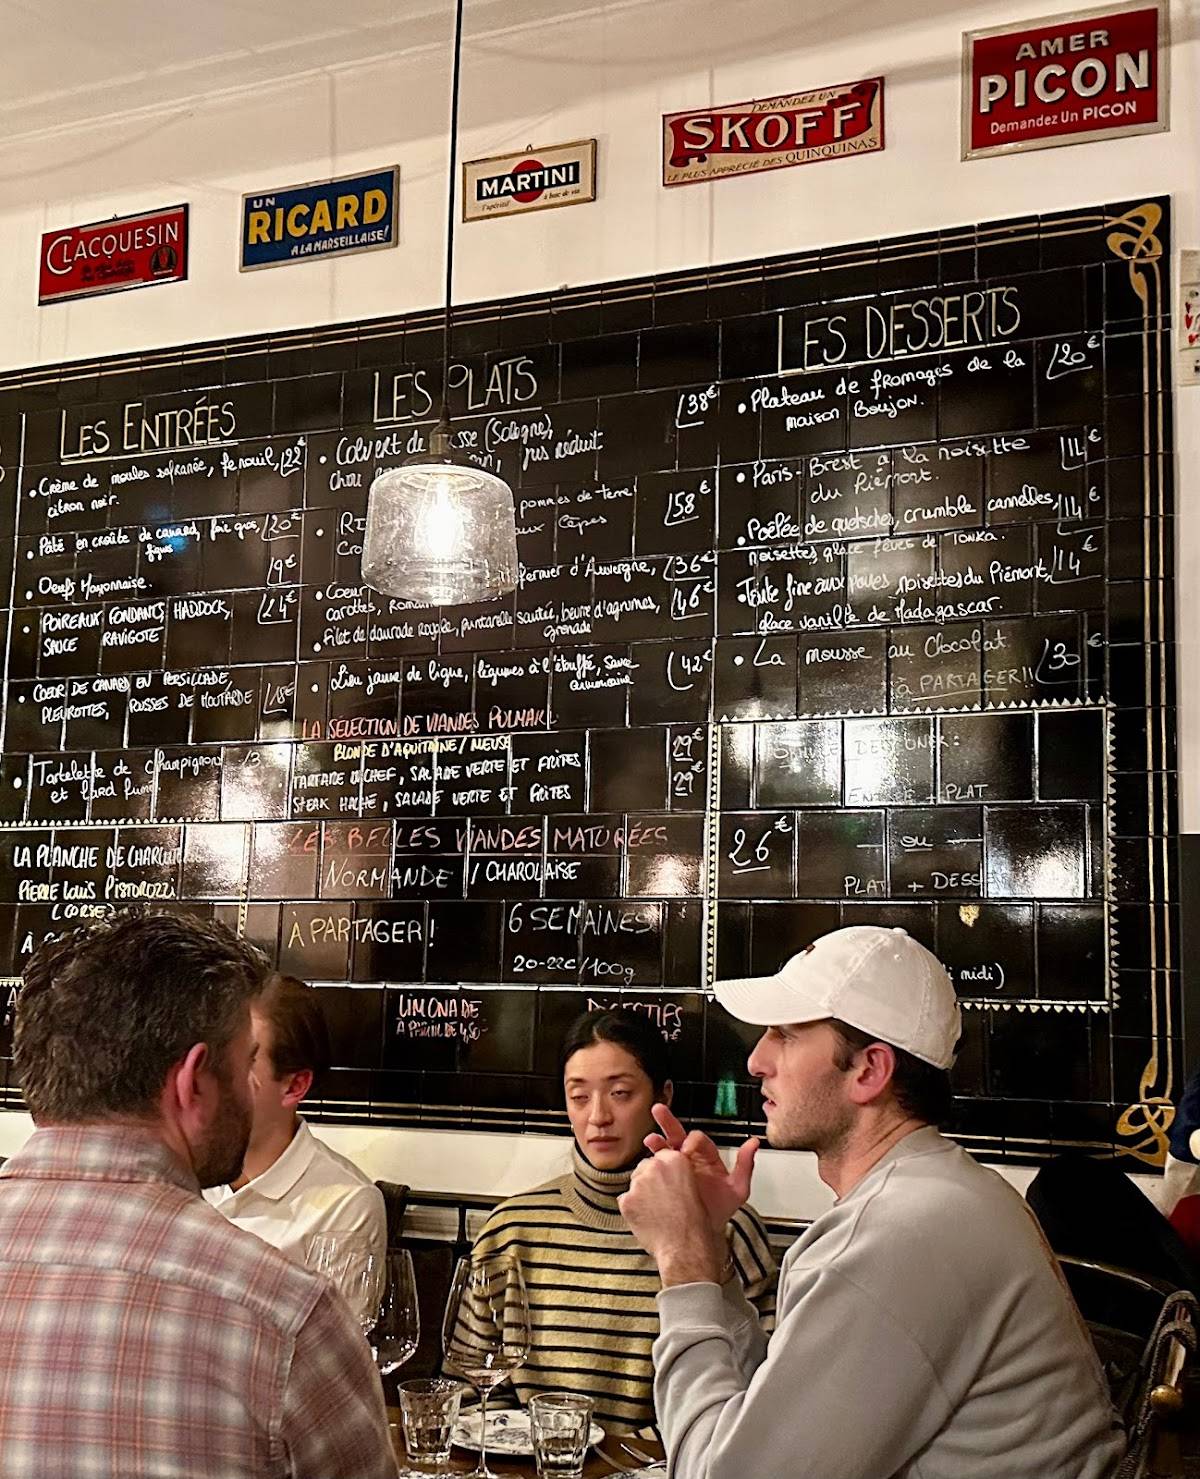 AMER
PICON
Demandez Un PICON
DEMANDEZ UN
SKOFF
LE PLUS APPRECIÉ DES QUINQUINAS
MARTINI
UN
RICARD
A LA MARSEILLAISE!
CLACQUESIN
LES ENTRÉES
• Crème de moules safranée, fenouil, 22€
citron noir.
• Pâté en croûte de canard, foie gras, 20€
figues
• Oeufs Mayonnaise. 9€
• POIREAUX FONDANTS, HADDOCK,
SAUCE RAVIGOTE
• COEUR DE CANARD EN PERSILLADE,
PLEUROTTES, POUSSES DE MOUTARDE
• Tartelette de champignon
et lard fumé.
LA PLANCHE DE
PIERRE Louis
(CORSE)
À
LES PLATS
• Colvert de (Sologne), 38€
chou jus réduit
pommes de terre 58€
aux Cèpes
fermier d'Auvergne, 36€
• Coeur
carottes,
• Filet de daurade royale, puntarelle sautée, beurre d'agrumes, 46€
grenade
• Lieu jaune de ligne, légumes à l'étouffé, sauce 42€
LA SÉLECTION DE VIANDES POLMARD
BLONDE D'AQUITAINE / MEUSE
TARTARE DU CHEF, SALADE VERTE ET FRITES 29€
STEAK HACHÉ, SALADE VERTE ET FRITES 29€
LES BELLES VIANDES MATURÉES
NORMANDE / CHAROLAISE
À PARTAGER! 6 SEMAINES
20-22€/100g
LIMONADE
À PARTIR DE 4,50-
DIGESTIFS
9€
LES DESSERTS
• Plateau de fromages de la 20€
maison Boujon.
• Paris-Brest à la noisette 14€
du Piémont.
• Poêlée de quetsches, crumble cannelles, 14€
noisettes, glace fèves de Tonka.
noisettes du Piémont, 14€
glace vanille de Madagascar.
• La mousse au Chocolat 30€
à PARTAGER!!
PLAT
26€ — ou —
PLAT + DESS
midi)